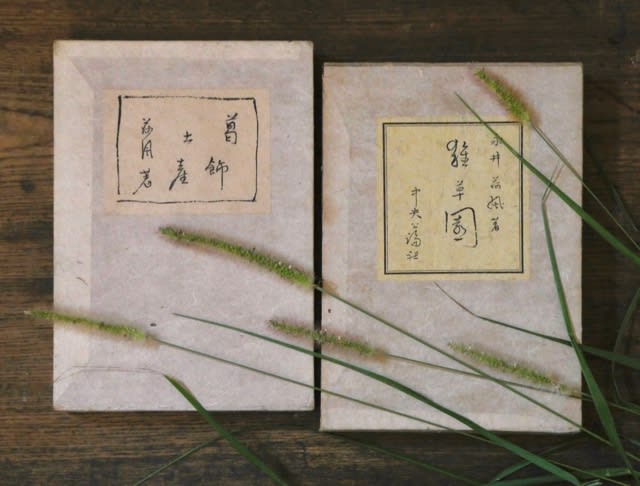 葛飾
土産
荷風著
永井荷風著
雑草園
中央公論社